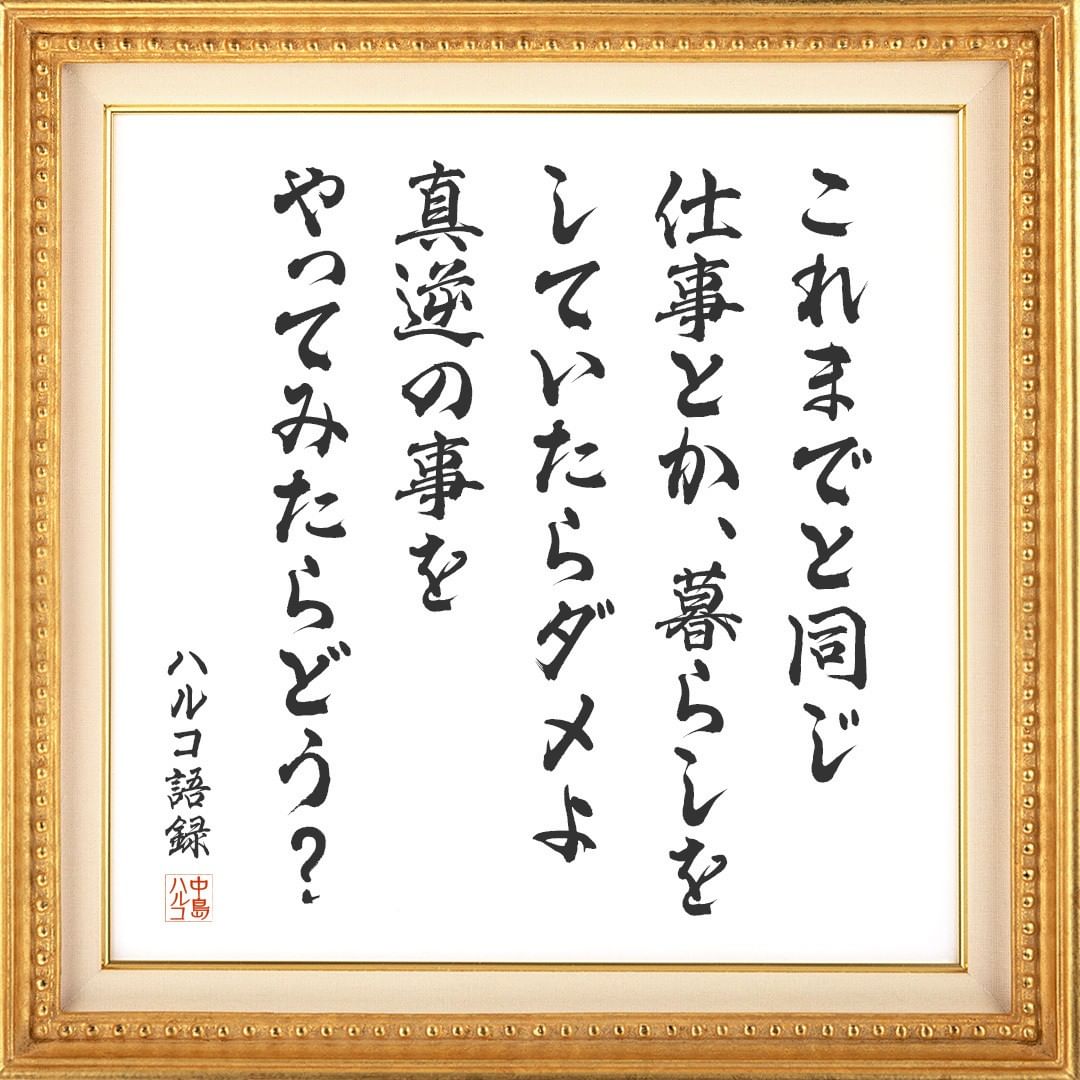 これまでと同じ
仕事とか、暮らしを
していたらダメよ
真逆の事を
やってみたらどう?
ハルコ語録
中島
ハルコ